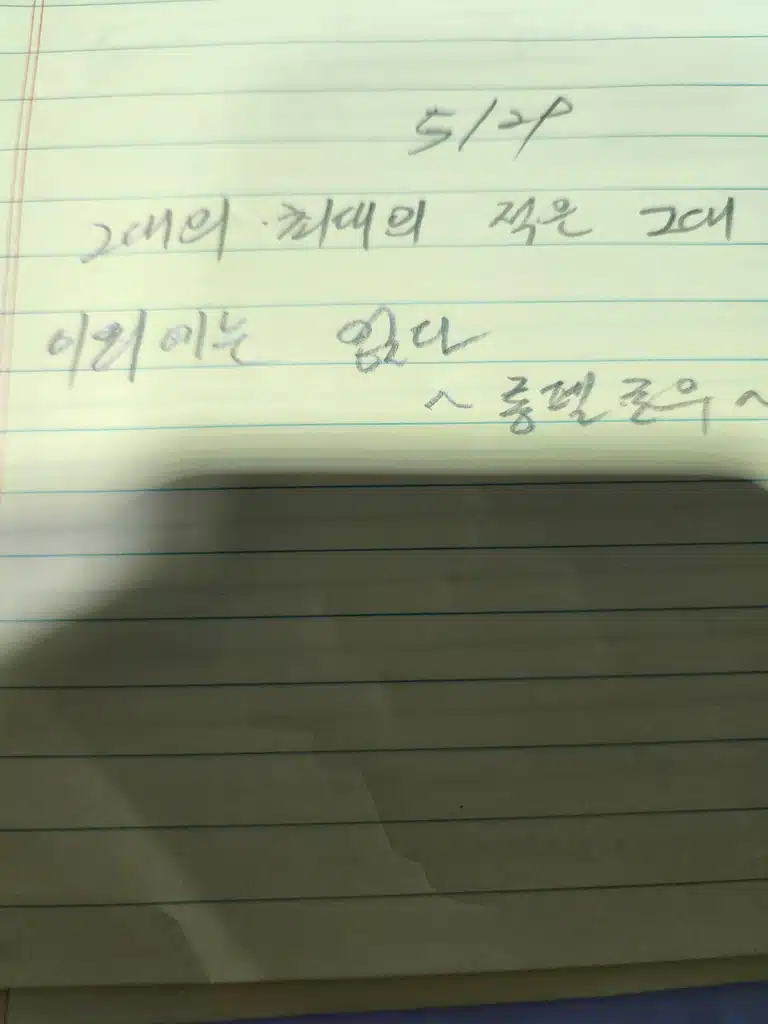 5/29
그대의 최대의 적은 그대
이외에는 없다
~롱펠로우~